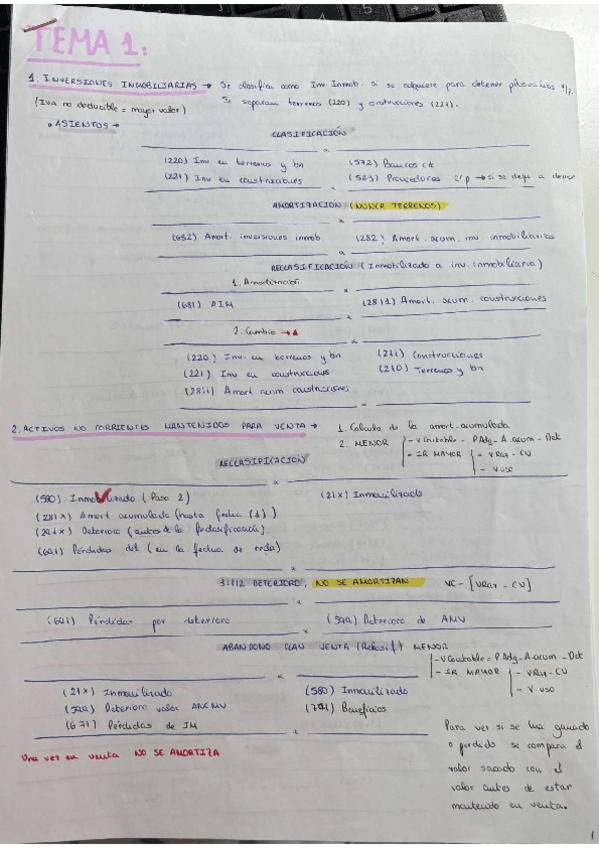 TEMA 1:
1. INVERSIONES INMOBILIARIAS → Se clasifica como Inv. Inmob. si se adquiere para obtener
(IVA no deducible = mayor valor) Se separan terrenos (220) y construcciones (221).
• ASIENTOS →
CLASIFICACIÓN
(220) Inv en terrenos y bn (572) Bancos c/c
(221) Inv en construcciones (523) Proveedores c/p → si se deja a deber
AMORTIZACIÓN (NUNCA TERRENOS)
(682) Amort. inversiones inmob. (282) Amort. acum. inv. inmobiliarias
RECLASIFICACIÓN (Inmovilizado a inv. inmobiliaria)
1. Amortización
(681) AIM (2811) Amort. acum. construcciones
2. Cambio →
(220) Inv. en terrenos y bn (211) Construcciones
(221) Inv en construcciones (210) Terrenos y bn
(2811) Amort acum construcciones
2. ACTIVOS NO CORRIENTES MANTENIDOS PARA VENTA → 1. Calculo de la amort. acumulada
2. MENOR - V Contable - P Adq - A. acum - Det
- IR MAYOR - VRaz - CV
- V uso
RECLASIFICACIÓN
(580) Inmovilizado (Paso 2) (21x) Inmovilizado
(281x) Amort acumulada (hasta fecha (1))
(291x) Deterioro (antes de la reclasificación)
(691) Pérdidas det (en la fecha de reclas)
31/12 DETERIORO, NO SE AMORTIZAN VC - [VRaz - CV]
(691) Pérdidas por deterioro (599) Deterioro de ANV
ABANDONO PLAN VENTA (Reclasif) MENOR
- V Contable = P Adq - A. acum - Det
- IR MAYOR - VRaz - CV
- V. uso
(21x) Inmovilizado (580) Inmovilizado
(599) Deterioro valor ANCMV (791) Beneficios
(671) Pérdidas de IM
Una vez en venta NO SE AMORTIZA
Para ver si se ha ganado
o perdido se compara el
valor sacado con el
valor antes de estar
mantenido en venta.
1